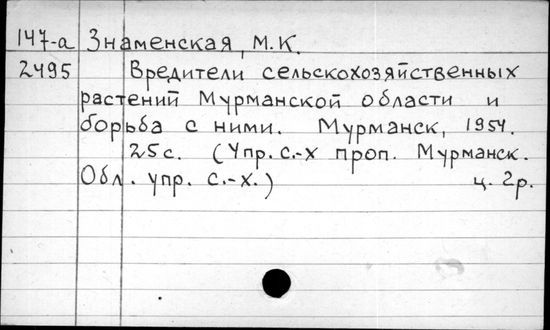 147-а Знаменская, М.К.
2495 Вредители сельскохозяйственных
растений Мурманской области и
борьба с ними. Мурманск, 1954.
25с. (Упр. с.-х проп. Мурманск.
Обл. упр. с.-х.) ц. 2р.